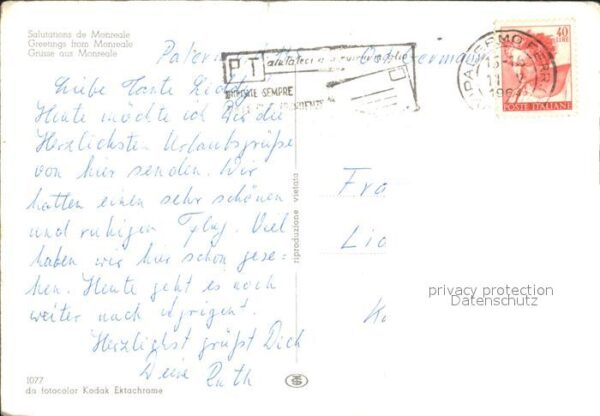 Salutations de Monreale
Greetings from Monreale
Grüsse aus Monreale
Palermo
Liebe Tante Liddy!
Heute möchte ich Dir die
Herzlichsten Urlaubsgrüße
von hier senden. Wir
hatten einen sehr schönen
und ruhigen Flug. Viel
haben wir hier schon gese-
hen. Heute geht es noch
weiter nach Agrigent.
Herzlichst grüßt Dich
Deine Ruth
1077
da fotocolor Kodak Ektachrome
riproduzione vietata
PT aiutateci a
SEMPRE
PALERMO FERROVIA
15-16
11
196
40
LIRE
POSTE ITALIANE
Fra
Lid
privacy protection
Datenschutz